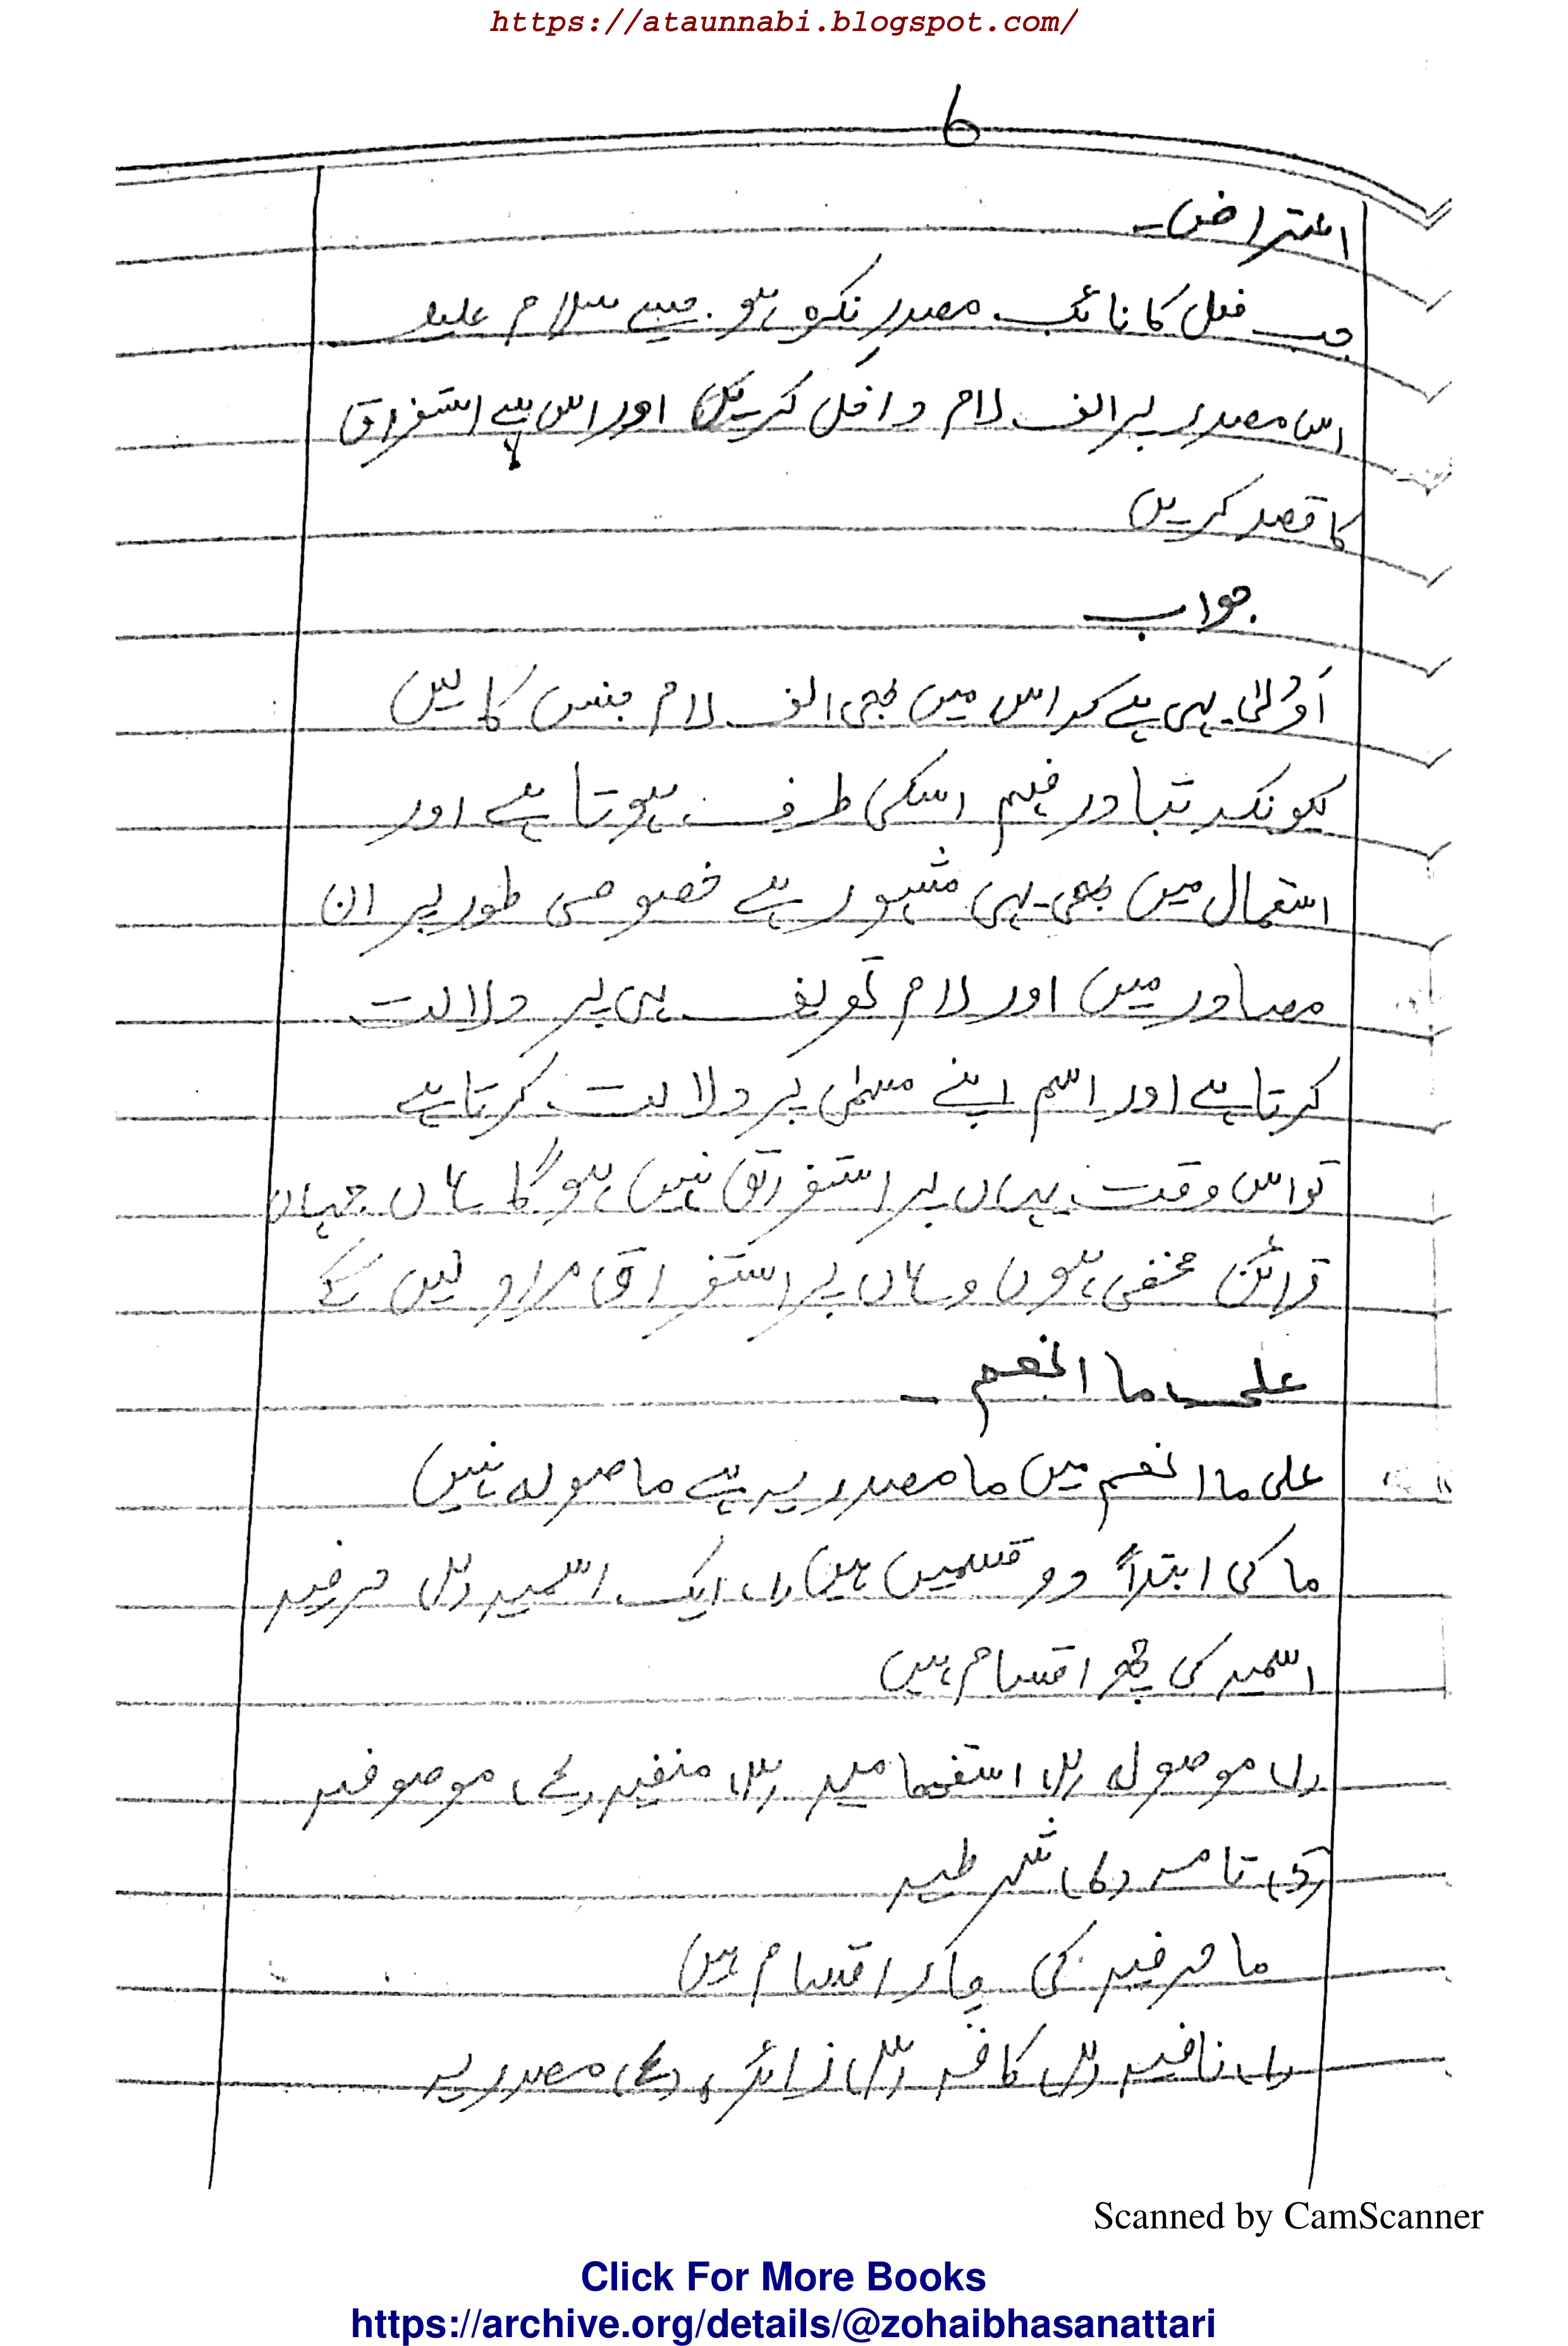 https://ataunnabi.blogspot.com/
6
اعتراض۔
جب فعل کا نائب مصدرِ نکرہ ہو۔ جیسے سلام علیک
اس مصدر پر الف لام داخل کریں اور اس سے استغراق
کا قصد کریں
جواب
اَوْلیٰ یہی ہے کہ اس میں بھی الف لام جنس کا لیں
کیونکہ تبادر فہم اسکی طرف ہوتا ہے اور
استعمال میں بھی یہی مشہور ہے خصوصی طور پر ان
مصادر میں اور لام تعریف ہی پر دلالت
کرتا ہے اور اسم اپنے مسمٰی پر دلالت کرتا ہے
تو اس وقت یہاں پر استغراق نہیں ہو گا ہاں جہاں
قرائن مخفی ہوں وہاں پر استغراق مراد لیں گے
علی ما انعم ۔
علی ما انعم میں ما مصدریہ ہے ماصولہ نہیں
ما کی ابتداً دو قسمیں ہیں (۱) ایک اسمیہ (۲) حرفیہ
اسمیہ کی چھ اقسام ہیں
(۱) موصولہ (۲) استفہامیہ (۳) منفیہ (۴) موصوفیہ
(۵) تامہ (۶) شرطیہ
ما حرفیہ کی چار اقسام ہیں
(۱) نافیہ (۲) کافہ (۳) زائدہ (۴) مصدریہ
Scanned by CamScanner
Click For More Books
https://archive.org/details/@zohaibhasanattari